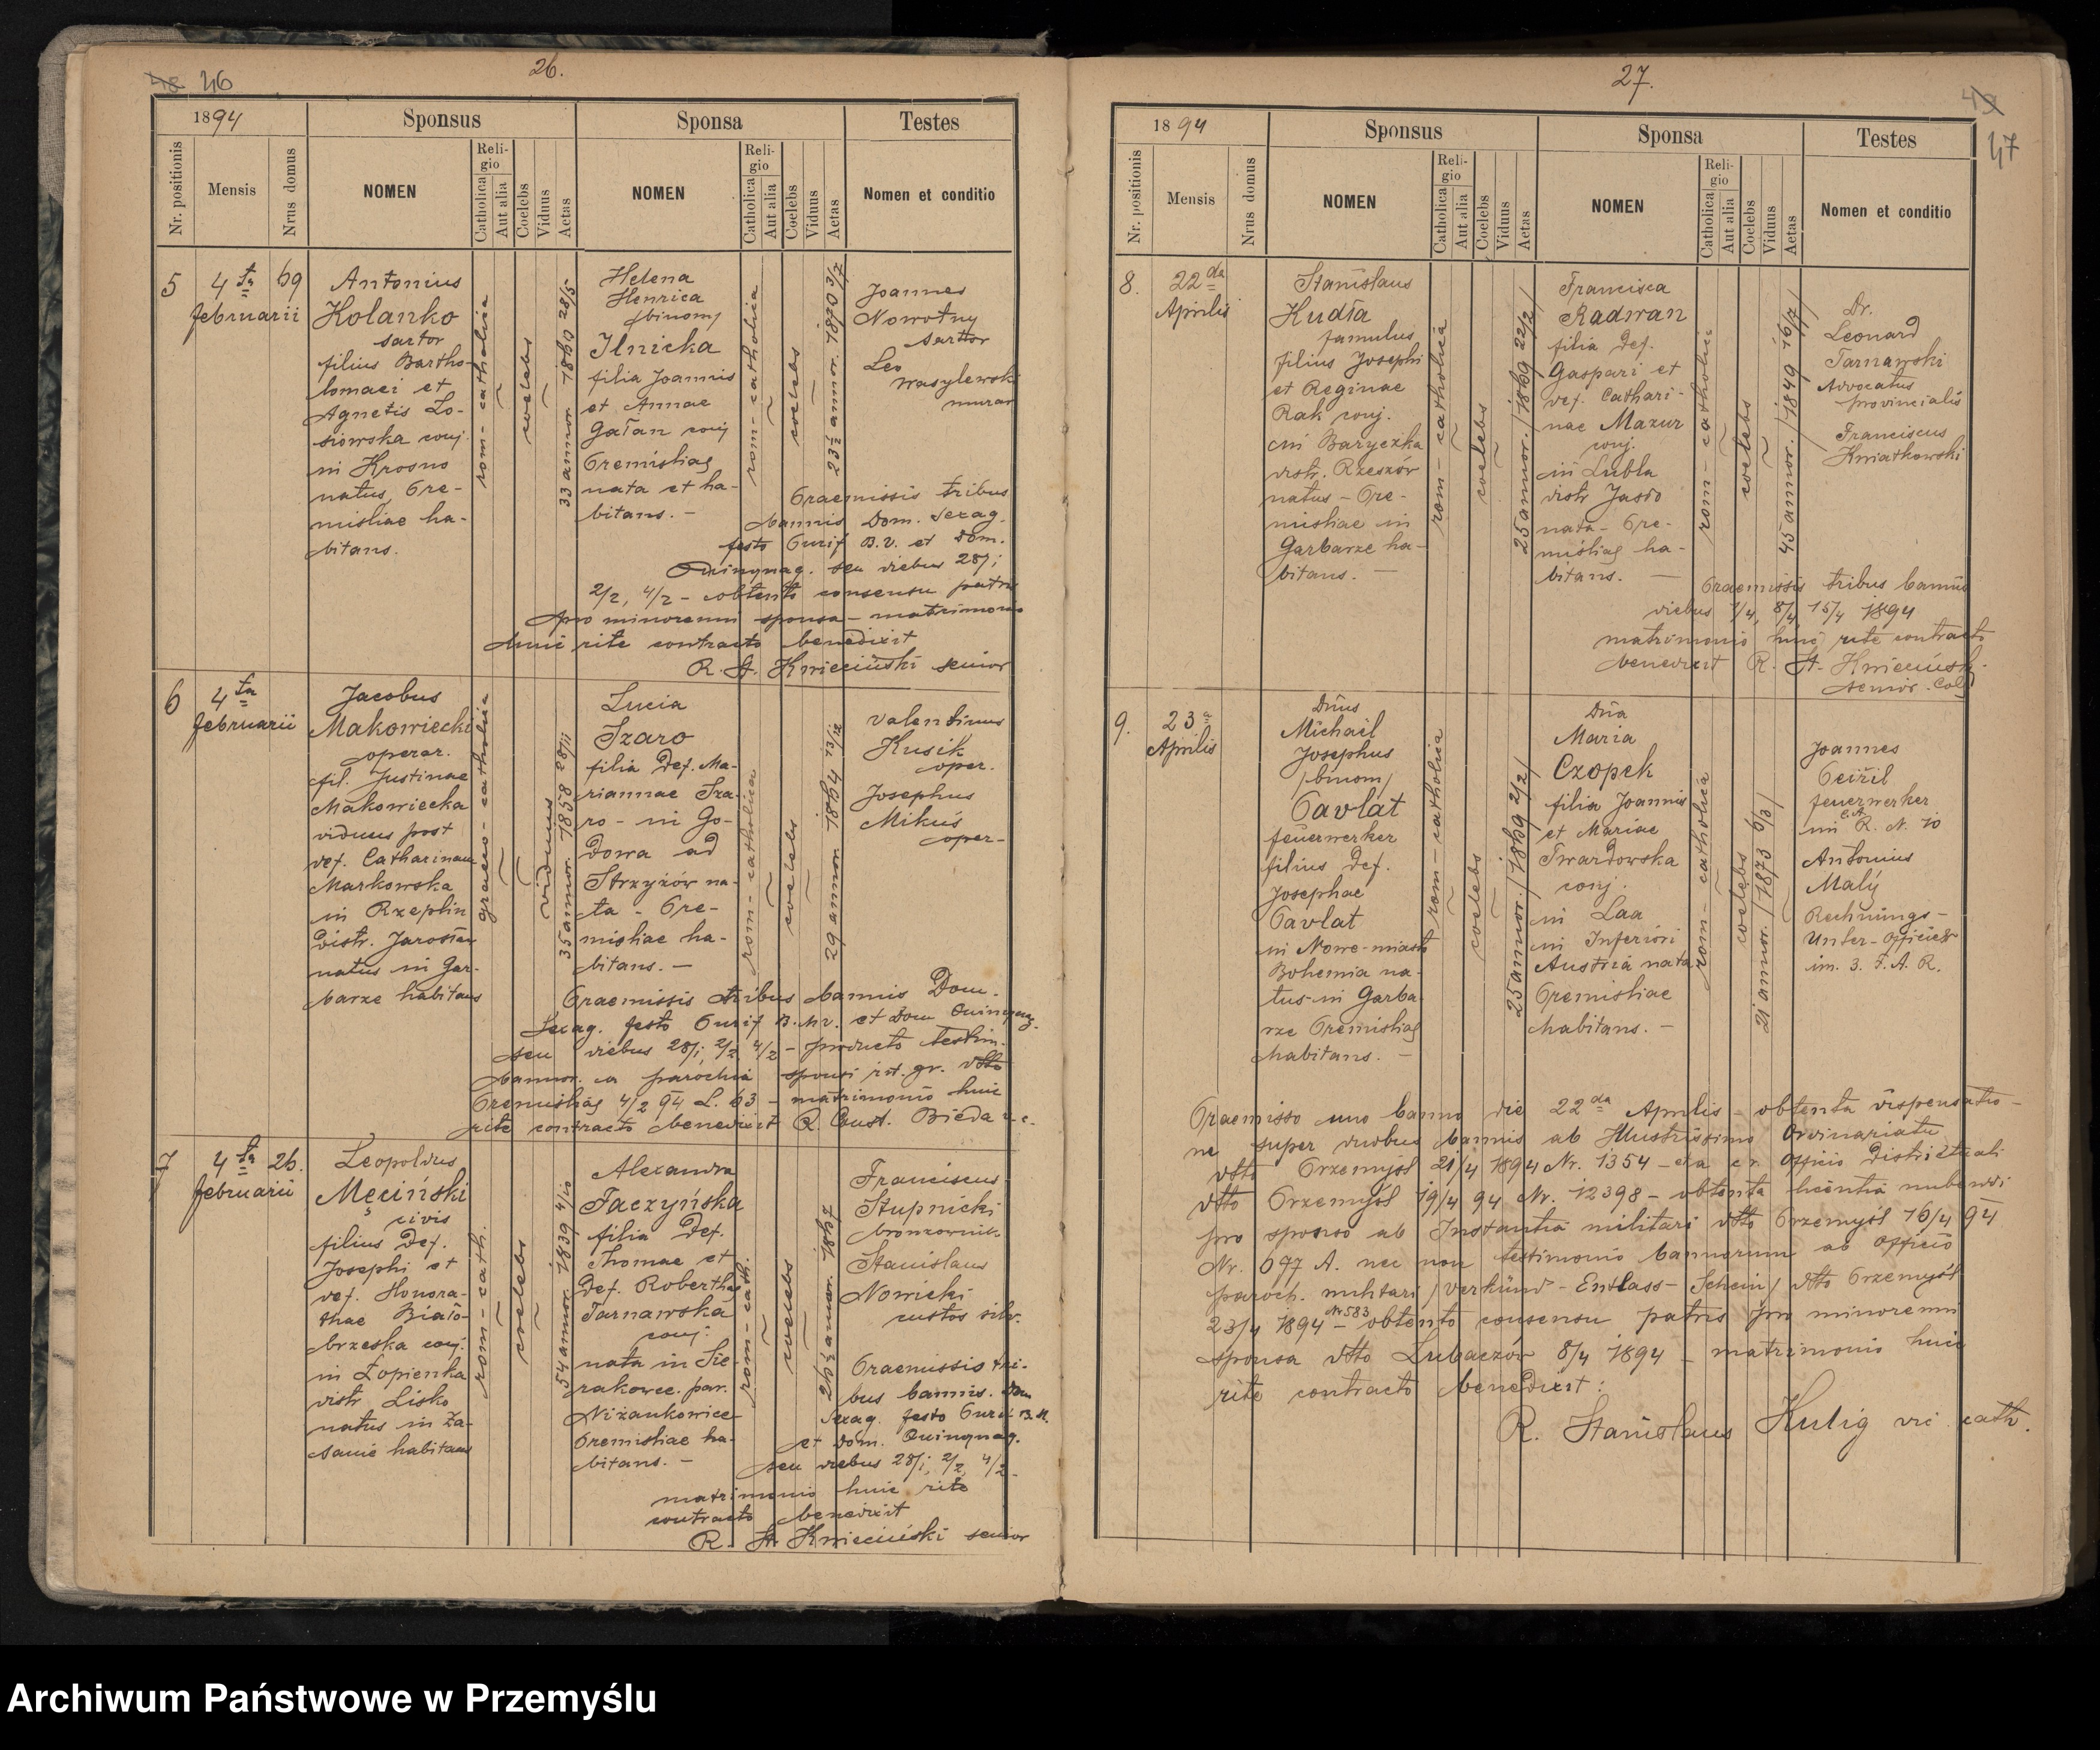 46
26.
1894
Sponsus
Sponsa
Testes
Nr. positionis
Mensis
Nrus domus
NOMEN
Religio
Catholica
Aut alia
Coelebs
Viduus
Aetas
NOMEN
Religio
Catholica
Aut alia
Coelebs
Viduus
Aetas
Nomen et conditio
5
4ta
februarii
69
Antonius
Kolanko
sartor
filius Bartho-
lomaei et
Agnetis Zo-
siowska conj.
in Krosno
natus, Pre-
misliae ha-
bitans.
rom-catholica
coelebs
33 annor. 1860 28/5
Helena
Henrica
/binom/
Ilnicka
filia Joannis
et Annae
Gałan conj
Premisliae
nata et ha-
bitans. -
rom-catholica
coelebs
23½ annor. 1870 3/7
Joannes
Nowotny
sartor
Leo
Wasylewsk
murar
Praemissis tribus
bannis Dom. Sexag.
festo Purif B.V. et Dom.
Quinquag. seu diebus 28/1
2/2, 4/2 - obtento consensu patris
pro minorenni sponsa - matrimonio
huic rite contracto benedixit
R. St. Kwieciński senior
6
4ta
februarii
Jacobus
Makowiecki
operar.
fil. Justinae
Makowiecka
viduus post
def. Catharinam
Markowska
in Rzeplin
Distr. Jarosłau
natus in Gar-
barze habitans
graeco-catholica
viduus
35 annor. 1858 28/11
Lucia
Szaro
filia Def. Ma-
riannae Sza-
ro - in Go-
Dowa ad
Strzyżów na-
ta - Pre-
misliae ha-
bitans. -
rom-catholica
coelebs
29 annor. 1864 13/12
Valentinus
Kusik
oper.
Josephus
Mikuś
oper-
Praemissis tribus bannis Dom.
Sexag. festo Purif B.M.V. et Dom Quinquag.
seu diebus 28/1, 2/2, 4/2 - producto testim.
bannor. a parochia sponsi rit. gr. dtto
Premisliae 4/2 94 L. 63 - matrimonio huic
rite contracto benedixit R. Aust. Bieda
7
4ta
februarii
26.
Leopoldus
Męciński
civis
filius Def.
Josephi et
def. Honora-
thae Biało-
brzeska conj.
in Łopienka
distr Lisko
natus in Za-
sanie habitans
rom-cath.
coelebs
54 annor. 1839 4/10
Alexandra
Faczyńska
filia Def.
Thomae et
Def. Roberthae
Tarnawska
conj.
nata in Sie-
rakowce. par.
Niżankowice
Premisliae ha-
bitans. -
rom-cath.
coelebs
26½ annor. 1867
Franciscus
Stupnicki
bronzownik
Stanislaus
Nowicki
custos silv.
Praemissis tri-
bus bannis. Dom
Sexag. festo Purif B.M.
et Dom. Quinquag.
seu diebus 28/1, 2/2, 4/2 -
matrimonio huic rite
contracto benedixit
R. St. Kwieciński senior
27.
47
1894
Sponsus
Sponsa
Testes
Nr. positionis
Mensis
Nrus domus
NOMEN
Religio
Catholica
Aut alia
Coelebs
Viduus
Aetas
NOMEN
Religio
Catholica
Aut alia
Coelebs
Viduus
Aetas
Nomen et conditio
8.
22da
Aprilis
Stanislaus
Kudła
famulus
filius Josephi
et Reginae
Rak conj.
in Baryczka
distr. Rzeszów
natus - Pre-
misliae in
Garbarze ha-
bitans. -
rom-catholica
coelebs
25 annor. /1869 22/2/
Francisca
Radwan
filia Def.
Gaspari et
def. Cathari-
nae Mazur
conj.
in Lubla
distr Jasło
nata - Pre-
misliae ha-
bitans. -
rom-catholica
coelebs
45 annor. /1849 16/7/
Dr.
Leonard
Tarnawski
Advocatus
provincialis
Franciscus
Kwiatkowski
Praemissis tribus bannis
diebus 1/4, 8/4, 15/4 1894
matrimonio huic rite contracto
benedixit R. St. Kwieciński
senior. Col
9.
23a
Aprilis
Dnus
Michael
Josephus
/binom/
Pavlat
feuerwerker
filius Def.
Josephae
Pavlat
in Nowe-miasto
Bohemia na-
tus in Garba-
rze Premisliae
habitans. -
rom-catholica
coelebs
25 annor. /1869 2/2/
Dna
Maria
Czopek
filia Joannis
et Mariae
Twardowska
conj.
in Laa
in Inferiori
Austria nata
Premisliae
habitans. -
rom-catholica
coelebs
21 annor. /1873 6/3/
Joannes
feuerwerker
im C. A. R. N. 10
Antonius
Malý
Rechnungs-
Unter-Officier
im. 3. F. A. R.
Praemisso uno banno die 22da Aprilis - obtenta dispensatio-
ne super duobus bannis ab Illustrissimo Ordinariatu
dtto Przemyśl 21/4 1894 Nr. 1354 - Officio Districtuali
dtto Przemyśl 19/4 94 Nr. 12398 - obtenta licentia nubendi
pro sponso ab Instantia militari dtto Przemyśl 16/4 94
Nr. 697 A. nec non testimonio bannorum ab Officio
paroch. militari /Verkünd-Entlass-Schein/ dtto Przemyśl
23/4 1894 - Nr 583 obtento consensu patris pro minorenni
sponsa dtto Lubaczów 8/4 1894 - matrimonio huic
rite contracto benedixit:
R. Stanislaus Kulig vic cath.
Archiwum Państwowe w Przemyślu